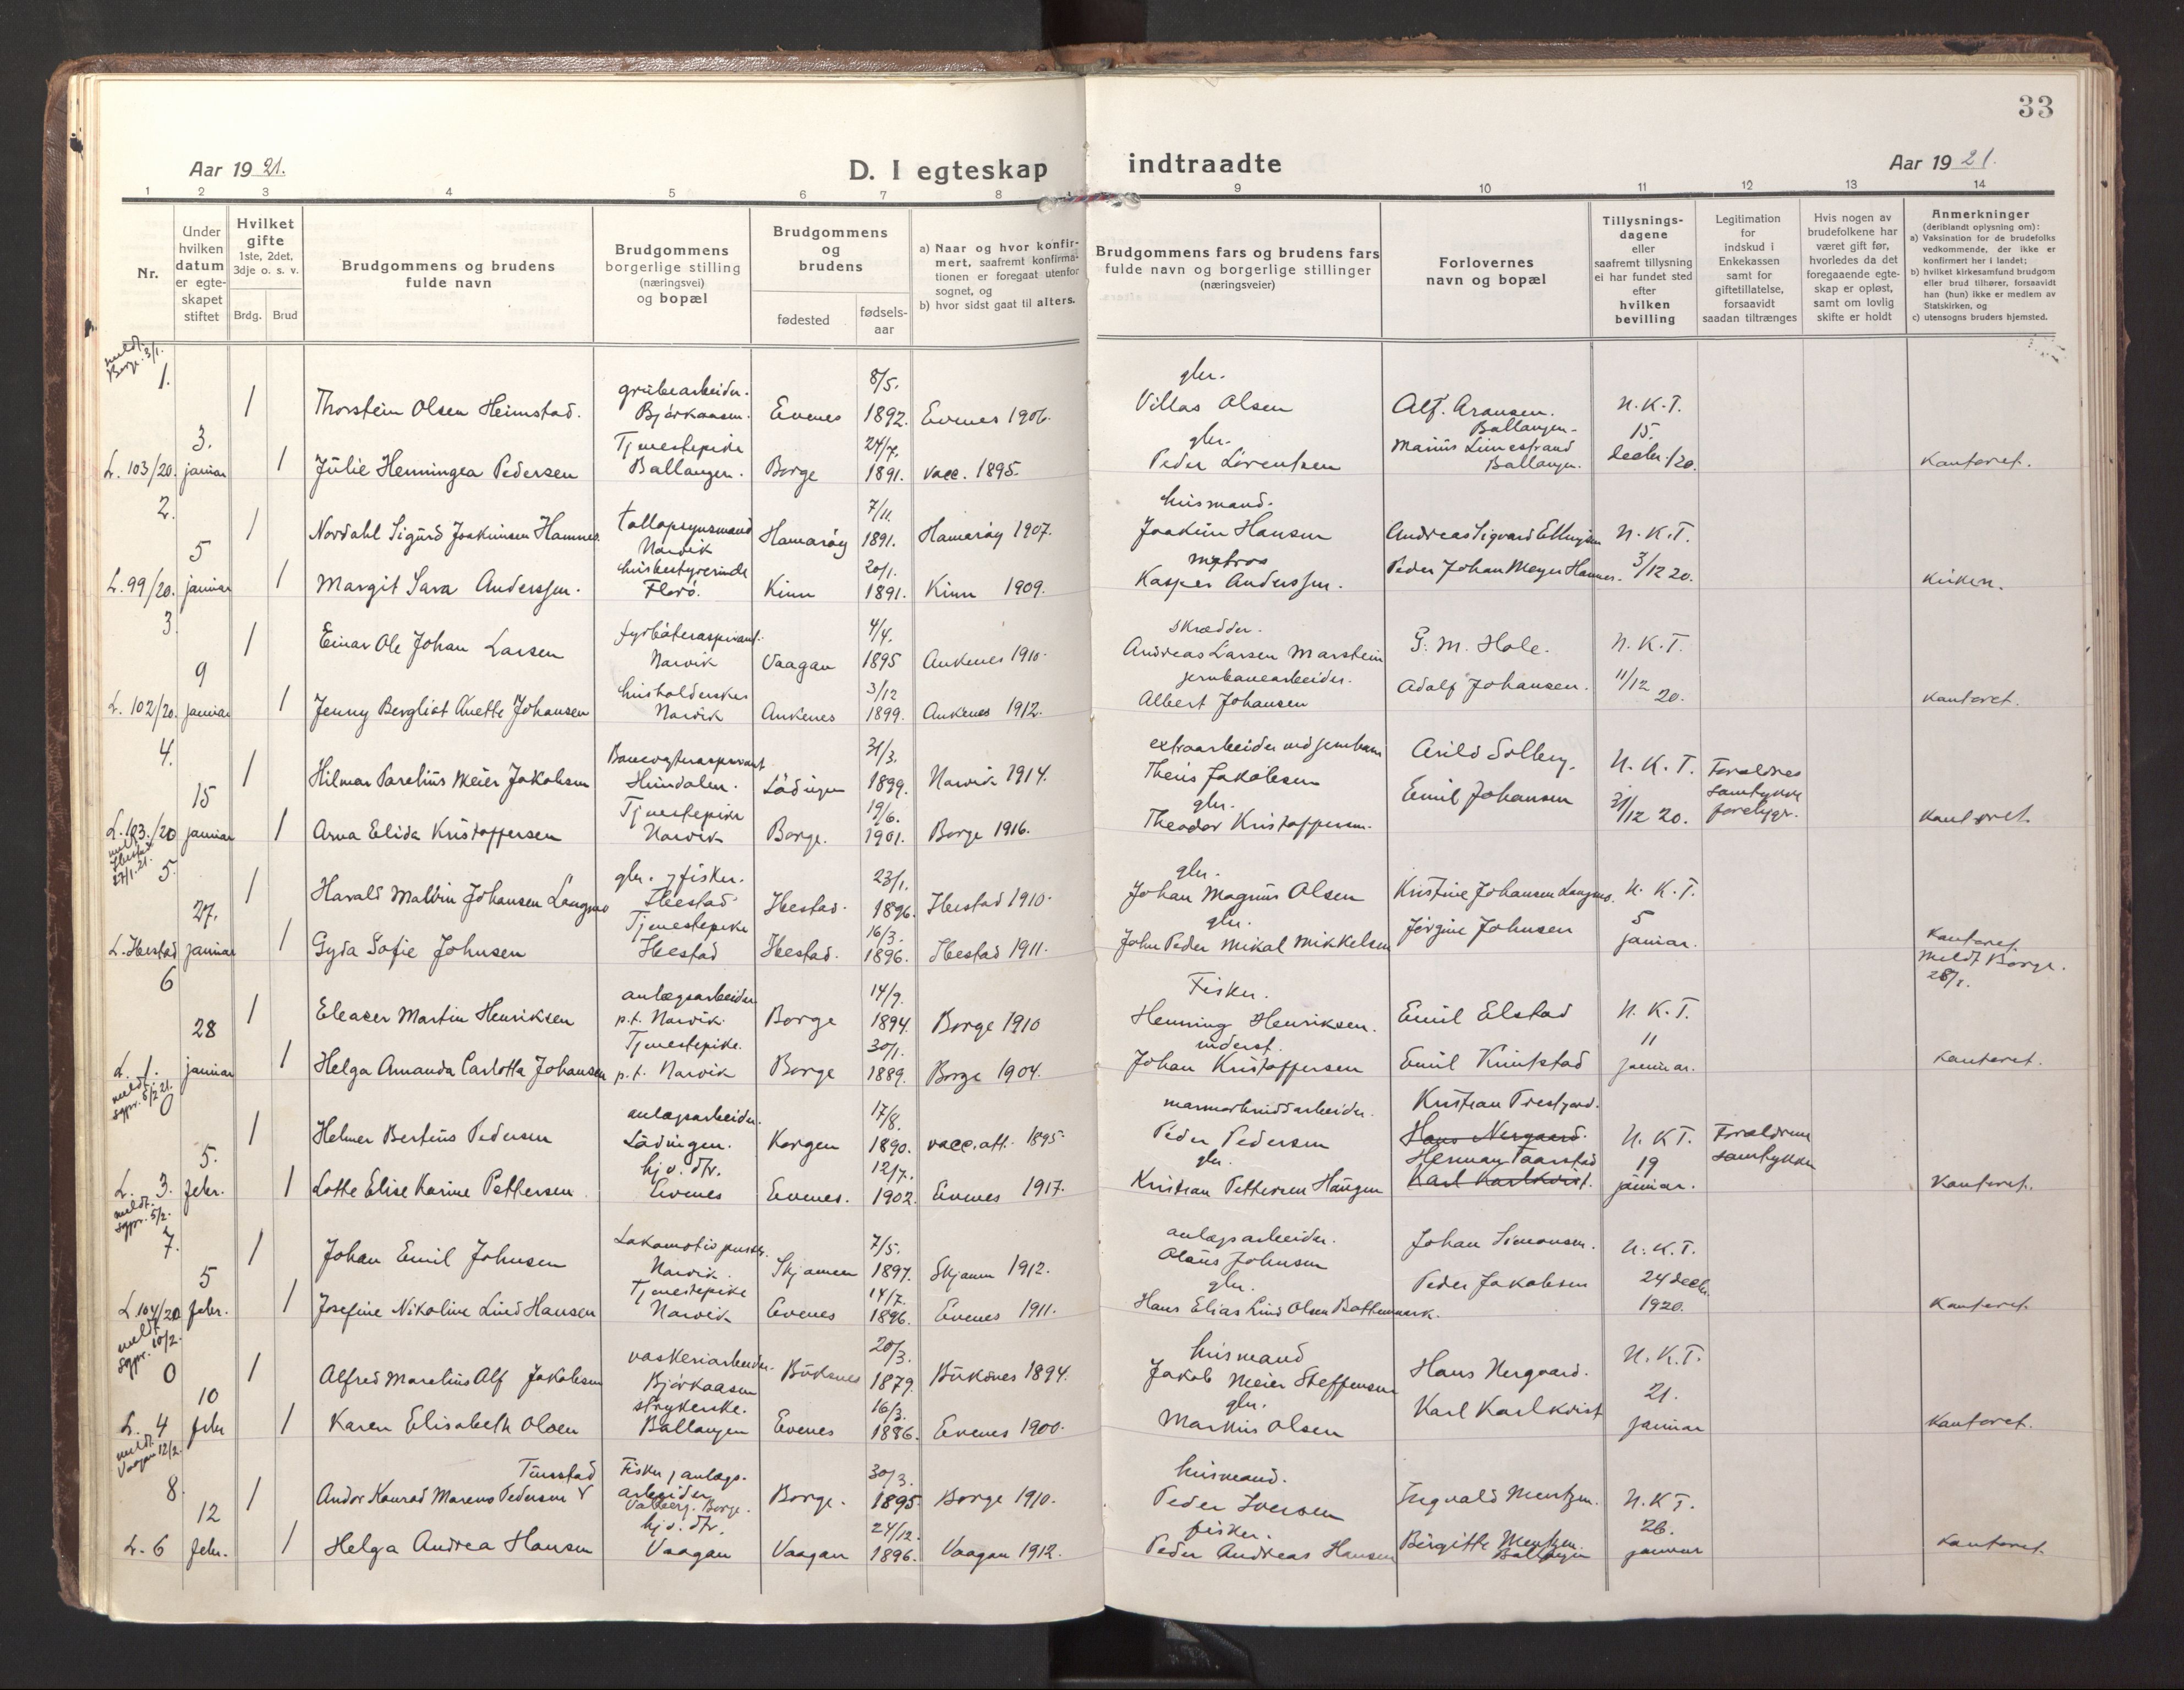 33
Aar 1921.
D. I egteskap indtraadte
Aar 1921.
1 2 3 4 5 6 7 8 9 10 11 12 13 14
Nr.
Under hvilken datum er egte-skapet stiftet
Hvilket gifte
1ste, 2det, 3dje o. s. v.
Brdg. Brud
Brudgommens og brudens fulde navn
Brudgommens borgerlige stilling (næringsvei) og bopæl
Brudgommens og brudens
fødested
fødsels-aar
a) Naar og hvor konfir-mert, saafremt konfirma-tionen er foregaat utenfor sognet, og
b) hvor sidst gaat til alters.
Brudgommens fars og brudens fars fulde navn og borgerlige stillinger (næringsveier)
Forlovernes navn og bopæl
Tillysnings-dagene eller saafremt tillysning ei har fundet sted efter hvilken bevilling
Legitimation for indskud i Enkekassen samt for giftetillatelse, forsaavidt saadan tiltrænges
Hvis nogen av brudefolkene har været gift før, hvorledes da det foregaaende egte-skap er opløst, samt om lovlig skifte er holdt
Anmerkninger
(deriblandt oplysning om):
a) Vaksination for de brudefolks vedkommende, der ikke er konfirmert her i landet;
b) hvilket kirkesamfund brudgom eller brud tilhører, forsaavidt han (hun) ikke er medlem av Statskirken, og
c) utensogns bruders hjemsted.
meldt. Borge 3/1.
1. 1 Thorstein Olsen Heimstad. grubearbeider. Bjørkaasen. Evenes 8/5. 1892. Evenes 1906. gbr. Villas Olsen Alf. Aronsen. Ballangen. N.K.T.
L. 103/20. 3. januar 1 Julie Henningea Pedersen Tjenestepike Ballangen. Borge 24/7. 1891. vacc. 1895. gbr. Peder Lorentsen Marius Limestrand Ballangen. 15. decbr. /20. Kontoret.
2. 1 Nordahl Sigurd Joakimsen Hamnes. tollopsynsmand Narvik Hamarøy 7/11. 1891. Hamarøy 1907. husmand. Joakim Hansen Andreas Sigvard Ellingsen N.K.T.
L. 99/20. 5 januar 1 Margit Sara Anderssen. husbestyrerinde Florø. Kinn 20/1. 1891. Kinn 1909. matros Kasper Anderssen. Peder Johan Meyer Hamnes. 3/12 20. Kirken.
3. 1 Einar Ole Johan Larsen fyrbøteraspirant. Narvik Vaagan 4/4. 1895 Ankenes 1910. skrædder. Andreas Larsen Marstein G. M. Hole. N.K.T.
L. 102/20. 9 januar 1 Jenny Bergliot Anette Johansen husholderske Narvik Ankenes 3/12 1899. Ankenes 1912. jernbanearbeider. Albert Johansen Adolf Johansen. 11/12 20. Kontoret.
4. 1 Hilmar Parelius Meier Jakobsen Banevogteraspirant Hundalen. Lødingen 31/3. 1899. Narvik 1914. extraarbeider ved jernbanen Theis Jakobsen Arild Solberg. N.K.T. Forældres samtykke forelygr.
L. 103./20 15 januar 1 Arna Elida Kristoffersen Tjenestepike Narvik Borge. 19/6. 1901. Borge 1916. gbr. Theodor Kristoffersen. Emil Johansen 31/12 20. Kontoret.
meldt Ibestad 27/1.21.
5. 1 Harald Malvin Johansen Langmo gbr. & fisker. Ibestad Ibestad. 23/1. 1896. Ibestad 1910. gbr. Johan Magnus Olsen Kristine Johansen Langmo. N.K.T.
L. Ibestad 27. januar 1 Gyda Sofie Johnsen Tjenestepike Ibestad Ibestad. 16/3. 1896. Ibestad 1911. gbr. John Peder Mikal Mikkelsen Jørgine Johnsen 5 januar. Kontoret.
meldt Borge. 28/1.
6 1 Eleaser Martin Henriksen anlægsarbeider p.t. Narvik. Borge 14/9. 1894. Borge 1910 Fisker. Henning Henriksen. Emil Elstad N.K.T.
L. 1. 28 januar 1 Helga Amanda Carlotta Johansen Tjenestepike. p.t. Narvik Borge 30/1. 1889. Borge 1904. inderst. Johan Kristoffersen Emil Kunkstad 11 januar. Kontoret.
meldt sgpr. 5/2 21.
0 1 Helmer Bertius Pedersen anlægsarbeider. Lødingen. Korgen 17/8. 1890. vacc.att. 1895. marmorbruddsarbeider. Peder Pedersen Kristian Trestgard. Hans Nergaard. N.K.T. Forældrene samtykker
L. 3. 5. febr. 1 Lotte Elise Karine Pettersen hj.v. dtr. Evenes Evenes. 12/7. 1902. Evenes 1917. gbr. Kristian Pettersen Haugen Herman Taarstad Karl Karlkvist. 19 januar. Kontoret.
meldt. sgpr. 5/2.
7. 1 Johan Emil Johnsen Lokomotivpusser. Narvik. Skjomen 7/5. 1897. Skjomen 1912. anlægsarbeider. Olaus Johnsen Johan Simonsen. N.K.T.
L. 104/20 5 febr. 1 Josefine Nikoline Lind Hansen Tjenestepike Narvik Evenes 14/7. 1896. Evenes 1911. gbr. Hans Elias Lind Olsen Bottenmark. Peder Jakobsen 24 decbr. 1920. Kontoret.
meldt sgpr. 10/2.
0 1 Alfred Marelius Alf Jakobsen vaskeriarbeider. Bjørkaasen Buksnes 20/3. 1879. Buksnes 1894. husmand Jakob Meier Steffensen Hans Nergaard. N.K.T.
L. 4 10 febr 1 Karen Elisabeth Olsen strykerske. Ballangen Evenes 16/3. 1886. Evenes 1900. gbr. Markus Olsen Karl Karlkvist 21. januar Kontoret.
meldt. Vaagan 12/2.
8. 1 Andor Konrad Marenus Pedersen Tinestad Fisker, anlægs-arbeider Valberg. Borge. Borge. 30/3. 1895 Borge 1910. husmand. Peder Iversen Ingvald Mentzen. N.K.T.
L. 6 12 febr. 1 Helga Andrea Hansen hj.v. dtr. Vaagan Vaagan 24/12. 1896. Vaagan 1912. fisker. Peder Andreas Hansen Birgitte Mentzen. Ballangen 26. januar Kontoret.